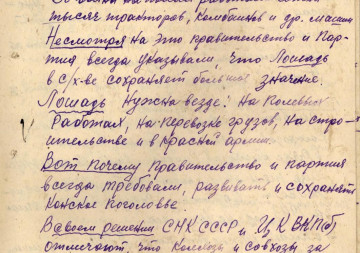 тысяч тракторов, комбайнов и др. машин
Несмотря на это правительство и пар-
тия всегда указывали, что лошадь
в с/х-ве сохраняет большое значение.
Лошадь нужна везде: на полевых
работах, на перевозке грузов, на стро-
ительстве и в красной армии.
Вот почему правительство и партия
всегда требовали, развивать и сохранять
конское поголовье.
В своем решении СНК СССР и ЦК ВКП(б)
отмечают, что колхозы и совхозы за